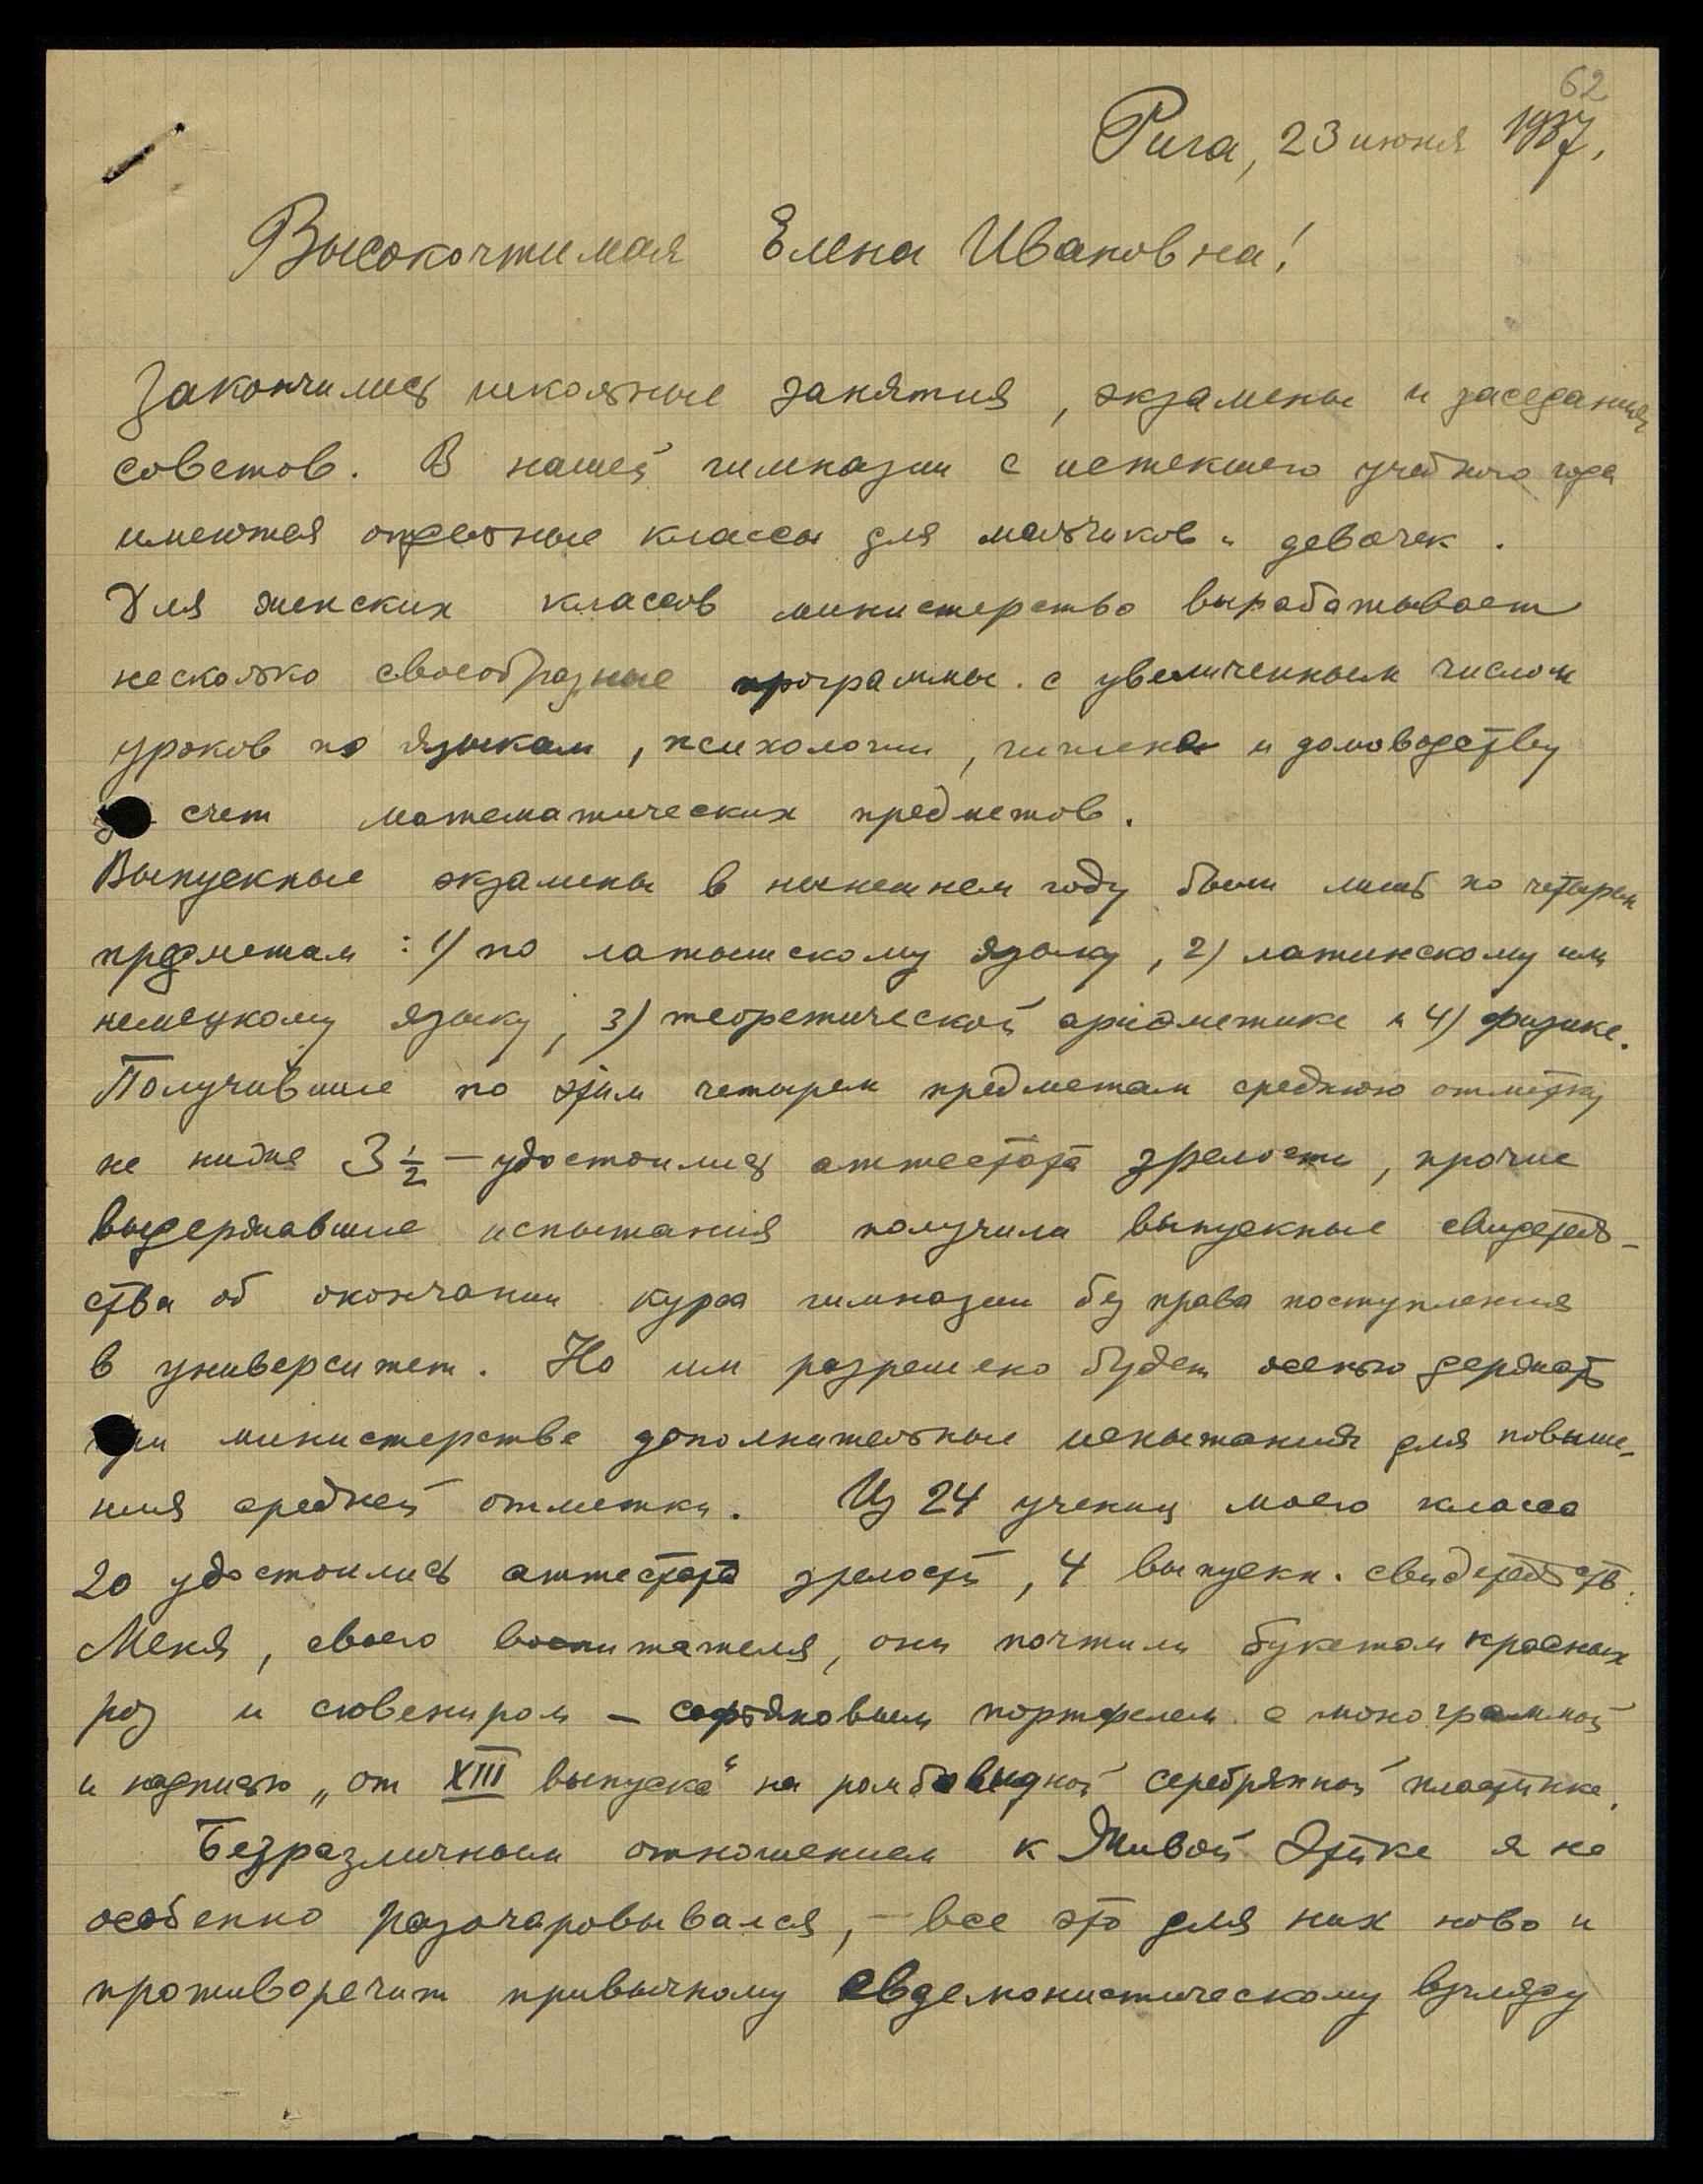 62
Рига, 23 июня 1937.
Высокочтимая Елена Ивановна!
Закончились школьные занятия, экзамены и заседания
советов. В нашей гимназии с истекшего учебного года
имеются отдельные классы для мальчиков и девочек.
Для женских классов министерство вырабатывает
несколько своеобразные программы с увеличенным числом
уроков по языкам, психологии, гигиене и домоводству
за счет математических предметов.
Выпускные экзамены в нынешнем году были лишь по четырем
предметам: 1) по латышскому языку, 2) латинскому или
немецкому языку, 3) теоретической арифметике и 4) физике.
Получившие по этим четырем предметам среднюю отметку
не ниже 3 1/2 – удостоились аттестата зрелости, прочие
выдержавшие испытания получили выпускные свидетель-
ства об окончании курса гимназии без права поступления
в университет. Но им разрешено будет осенью держать
при министерстве дополнительные испытания для повыше-
ния средней отметки. Из 24 учениц моего класса
20 удостоились аттестата зрелости, 4 выпускн. свидетельств.
Меня, своего воспитателя, они почтили букетом красных
роз и сювениром – сафьяновым портфелем с монограммой
и надписью „от XIII выпуска“ на ромбовидной серебрянной пластинке.
Безразличным отношением к Живой Этике я не
особенно разочаровывался, – все это для них ново и
противоречит привычному евдемонистическому взгляду